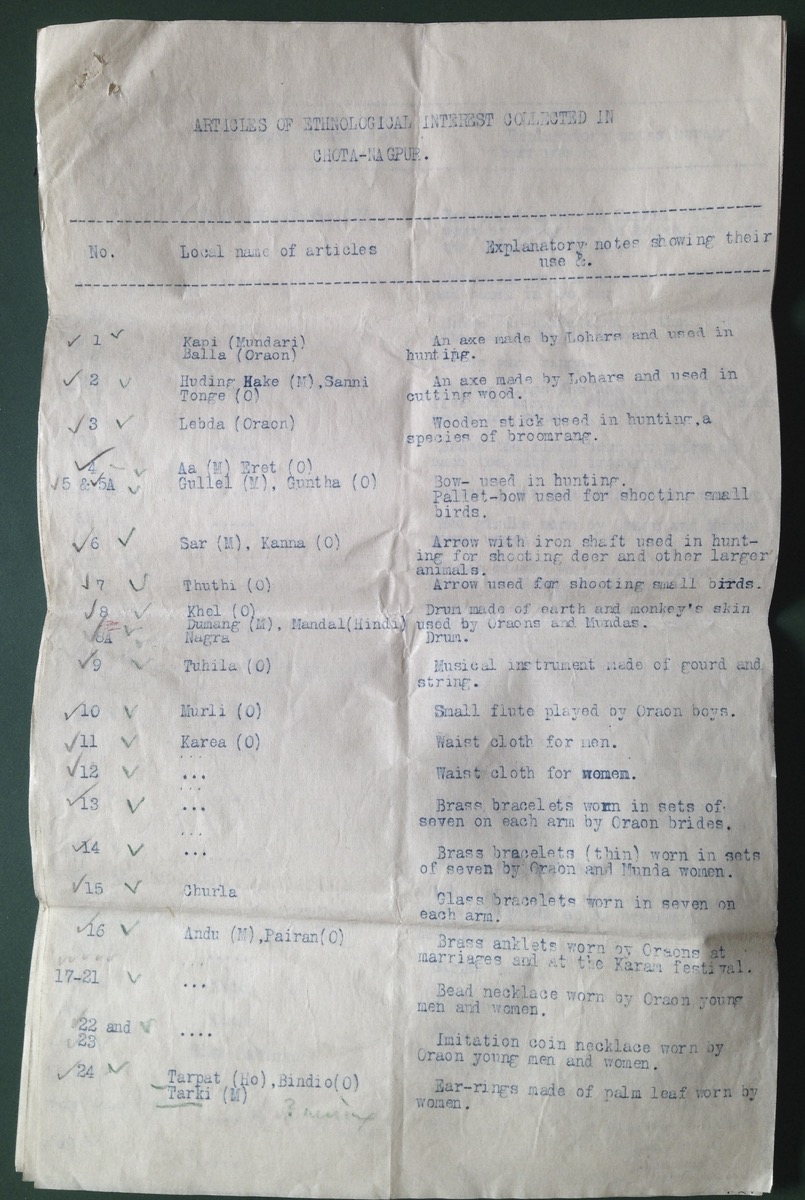 ARTICLES OF ETHNOLOGICAL INTEREST COLLECTED IN
CHOTA-NAGPUR.
No. Local name of articles Explanatory notes showing their
use &.
1 Kapi (Mundari) An axe made by Lohars and used in
Balla (Oraon) hunting.
2 Huding Hake (M),Sanni An axe made by Lohars and used in
Tonge (O) cutting wood.
3 Lebda (Oraon) Wooden stick used in hunting,a
species of broomrang.
4 Aa (M) Eret (O) Bow- used in hunting.
5 & 5A Gullel (M), Guntha (O) Pallet-bow used for shooting small
birds.
6 Sar (M), Kanna (O) Arrow with iron shaft used in hunt-
ing for shooting deer and other larger
animals.
7 Thuthi (O) Arrow used for shooting small birds.
8 Khel (O) Drum made of earth and monkey's skin
Dumang (M), Mandal(Hindi) used by Oraons and Mundas.
8A Nagra Drum.
9 Tuhila (O) Musical instrument made of gourd and
string.
10 Murli (O) Small flute played by Oraon boys.
11 Karea (O) Waist cloth for men.
...
12 ... Waist cloth for women.
...
13 ... Brass bracelets worn in sets of
seven on each arm by Oraon brides.
...
14 ... Brass bracelets (thin) worn in sets
of seven by Oraon and Munda women.
15 Churla Glass bracelets worn in seven on
each arm.
16 Andu (M),Pairan(O) Brass anklets worn by Oraons at
marriages and at the Karam festival.
...
17-21 ... Bead necklace worn by Oraon young
men and women.
22 and .... Imitation coin necklace worn by
23 Oraon young men and women.
24 Tarpat (Ho),Bindio(O) Ear-rings made of palm leaf worn by
Tarki (M) women.